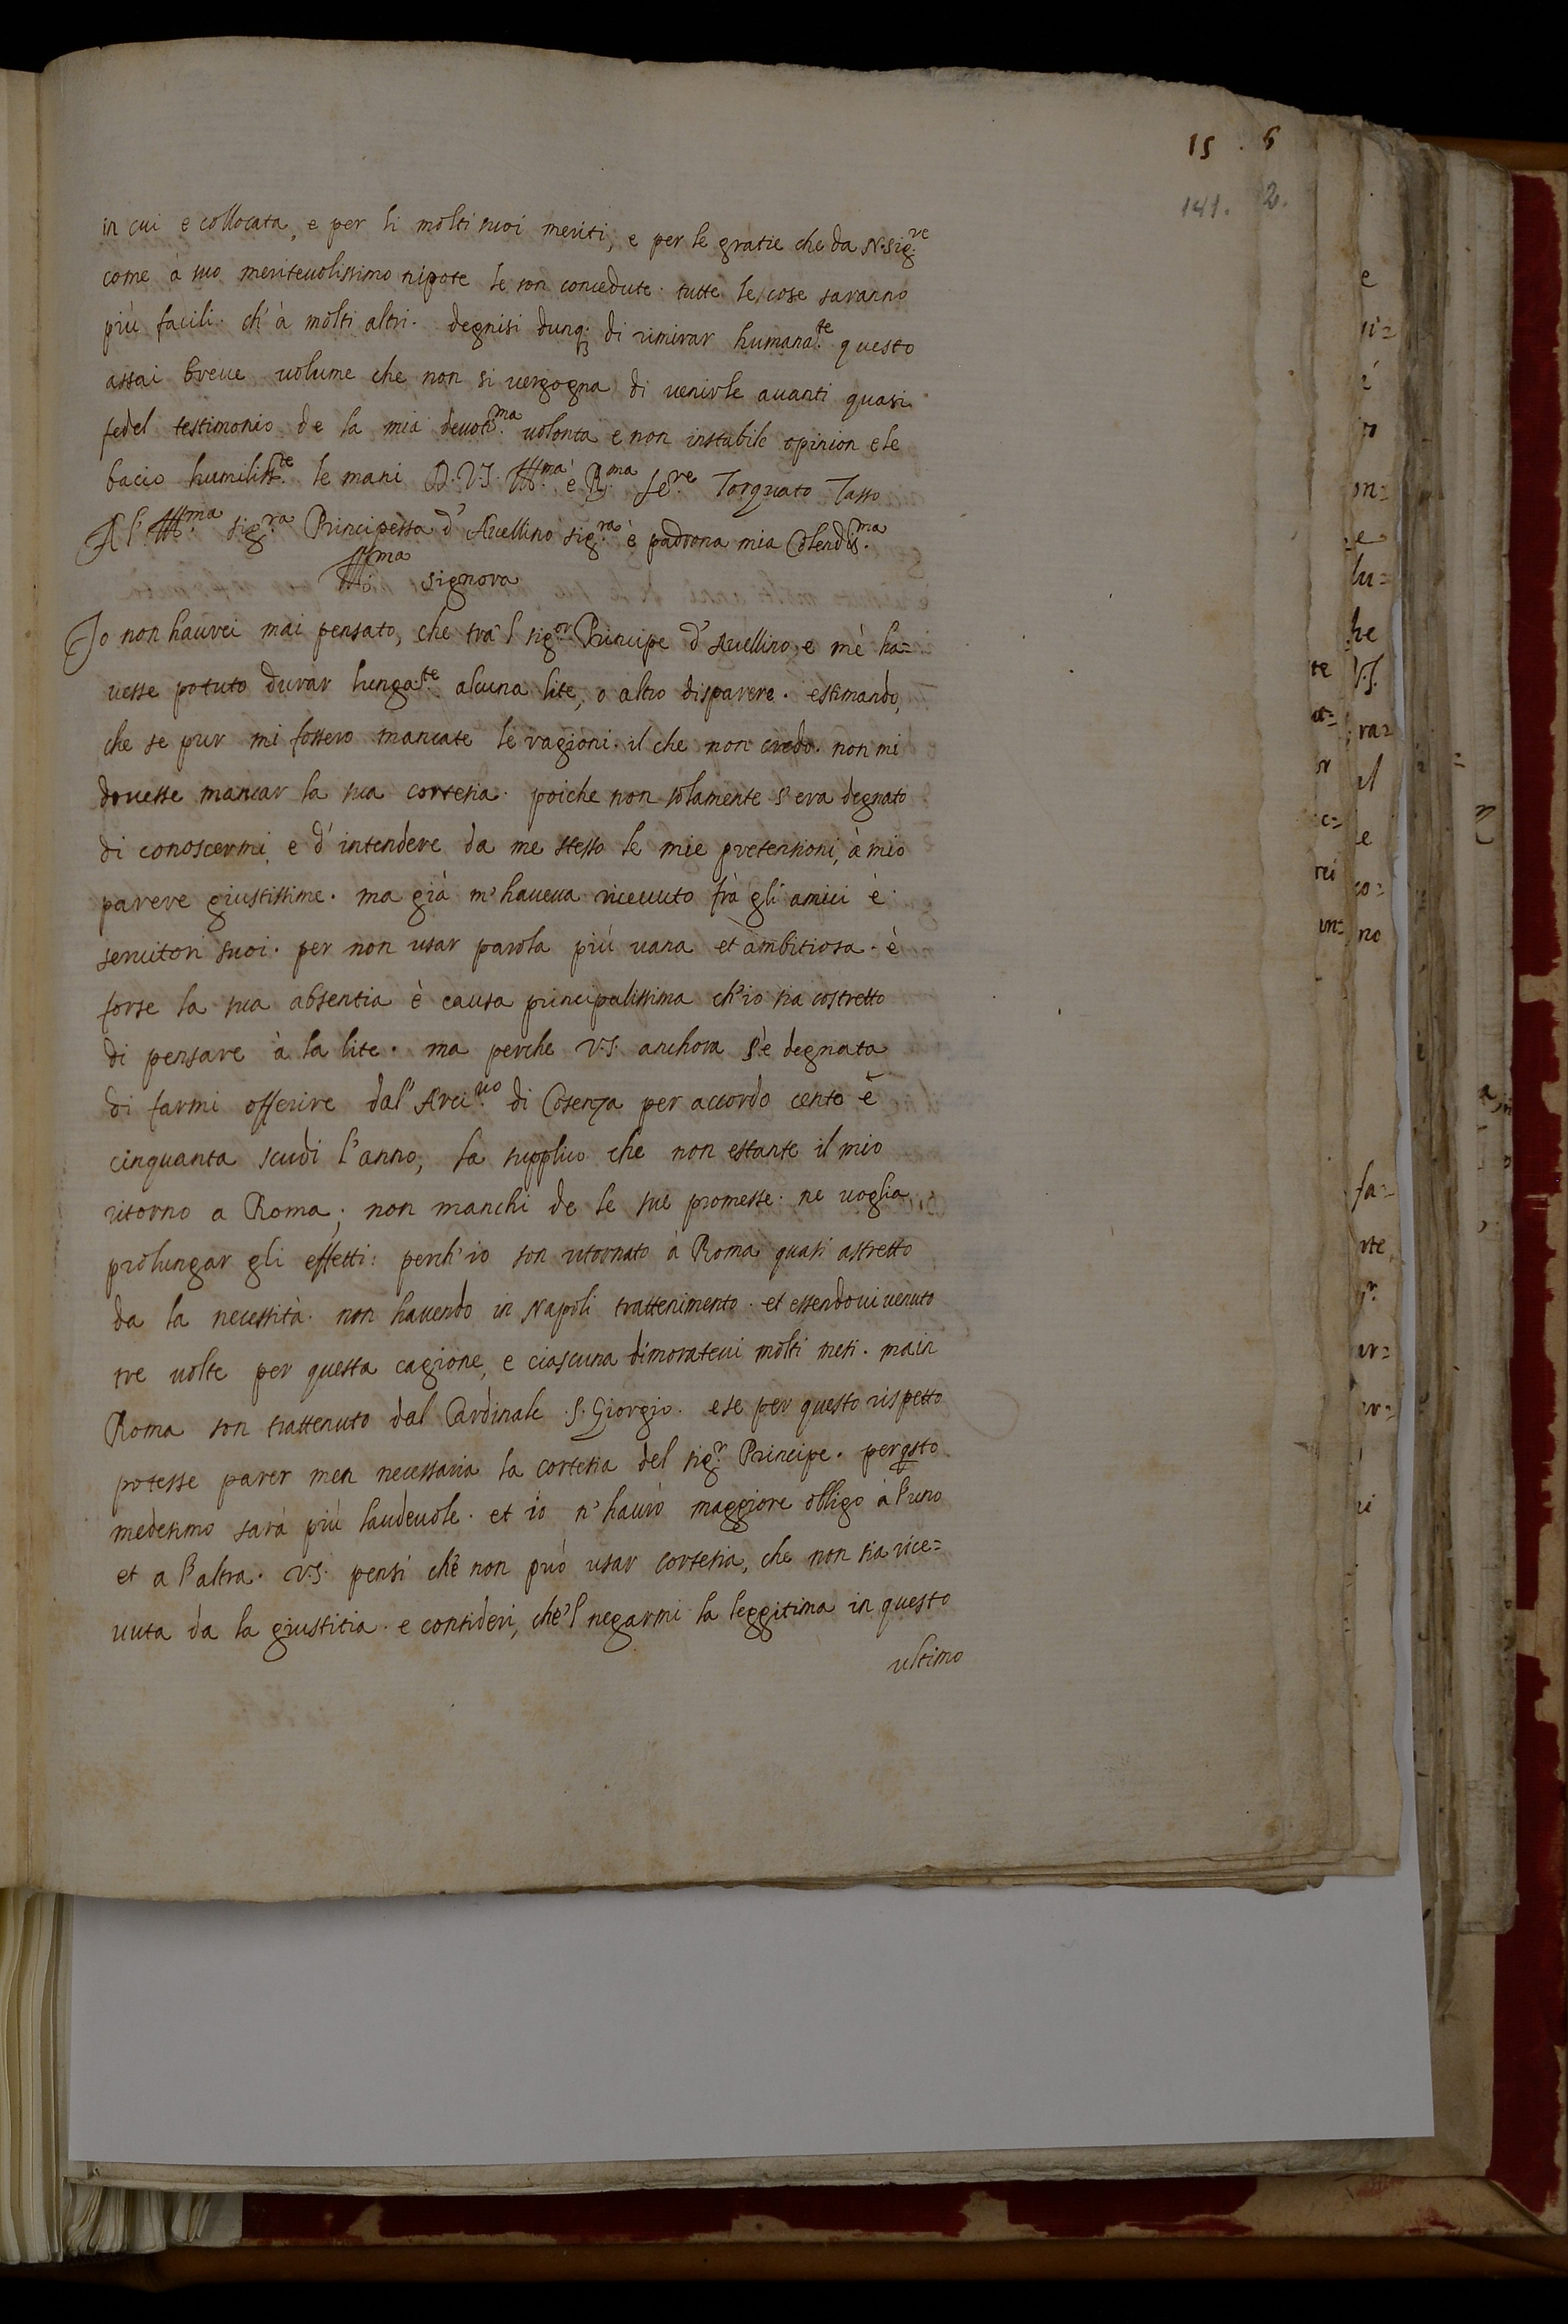 15 . 6
141. 2.
in cui e collocata, e per li molti suoi meriti, e per le gratie che da N. Sig.re
come à suo meriteuolissimo nipote le son concedute. tutte le cose saranno
più facili. ch'à molti altri. degnisi dunq; di rimirar humana.te questo
assai breue uolume che non si uergogna di uenirle auanti quasi
fedel testimonio de la mia deuotis.ma uolonta e non instabile opinion e le
bacio humiliss.te le mani D. V. S. Ill.ma è R.ma Se.re Torquato Tasso
A l'Ill.ma Sig.ra Principessa d'Auellino sig.ra è padrona mia Colendis.ma
Ill.ma Signora
Io non haurei mai pensato, che tra 'l sig.or Principe d'Auellino e mè ha=
uesse potuto durar lunga.te alcuna lite, o altro disparere. estimando,
che se pur mi fossero mancate le ragioni. il che non credo. non mi
douesse mancar la sua cortesia. poiche non solamente s'era degnato
di conoscermi, e d'intendere da me stesso le mie pretensioni, à mio
parere giustissime. ma già m'haueua riceuuto frà gli amici è
seruitori suoi. per non usar parola più uana et ambitiosa. è
forse la sua absentia è causa principalissima ch'io sia costretto
di pensare à la lite. ma perche V.S. anchora s'è degnata
di farmi offerire dal'Arci.uo di Cosenza per accordo cento è
cinquanta scudi l'anno, la supplico che non estante il mio
ritorno a Roma; non manchi de le sue promesse. ne uoglia
prolungar gli effetti: perch'io son ritornato à Roma quasi astretto
da la necessità. non hauendo in Napoli trattenimento. et essendoui uenuto
tre uolte per questa cagione, e ciascuna dimorateui molti mesi. ma in
Roma son trattenuto dal Cardinale .S. Giorgio. e se per questo rispetto
potesse parer men necessaria la cortesia del sig.r Principe. per qsto
medesimo sarà più laudeuole. et io n'haurò maggiore obligo à l'uno
et a l'altra. V.S. pensi chè non può usar cortesia, che non sia rice=
uuta da la giustitia. e consideri, che'l negarmi la leggitima in questo
ultimo